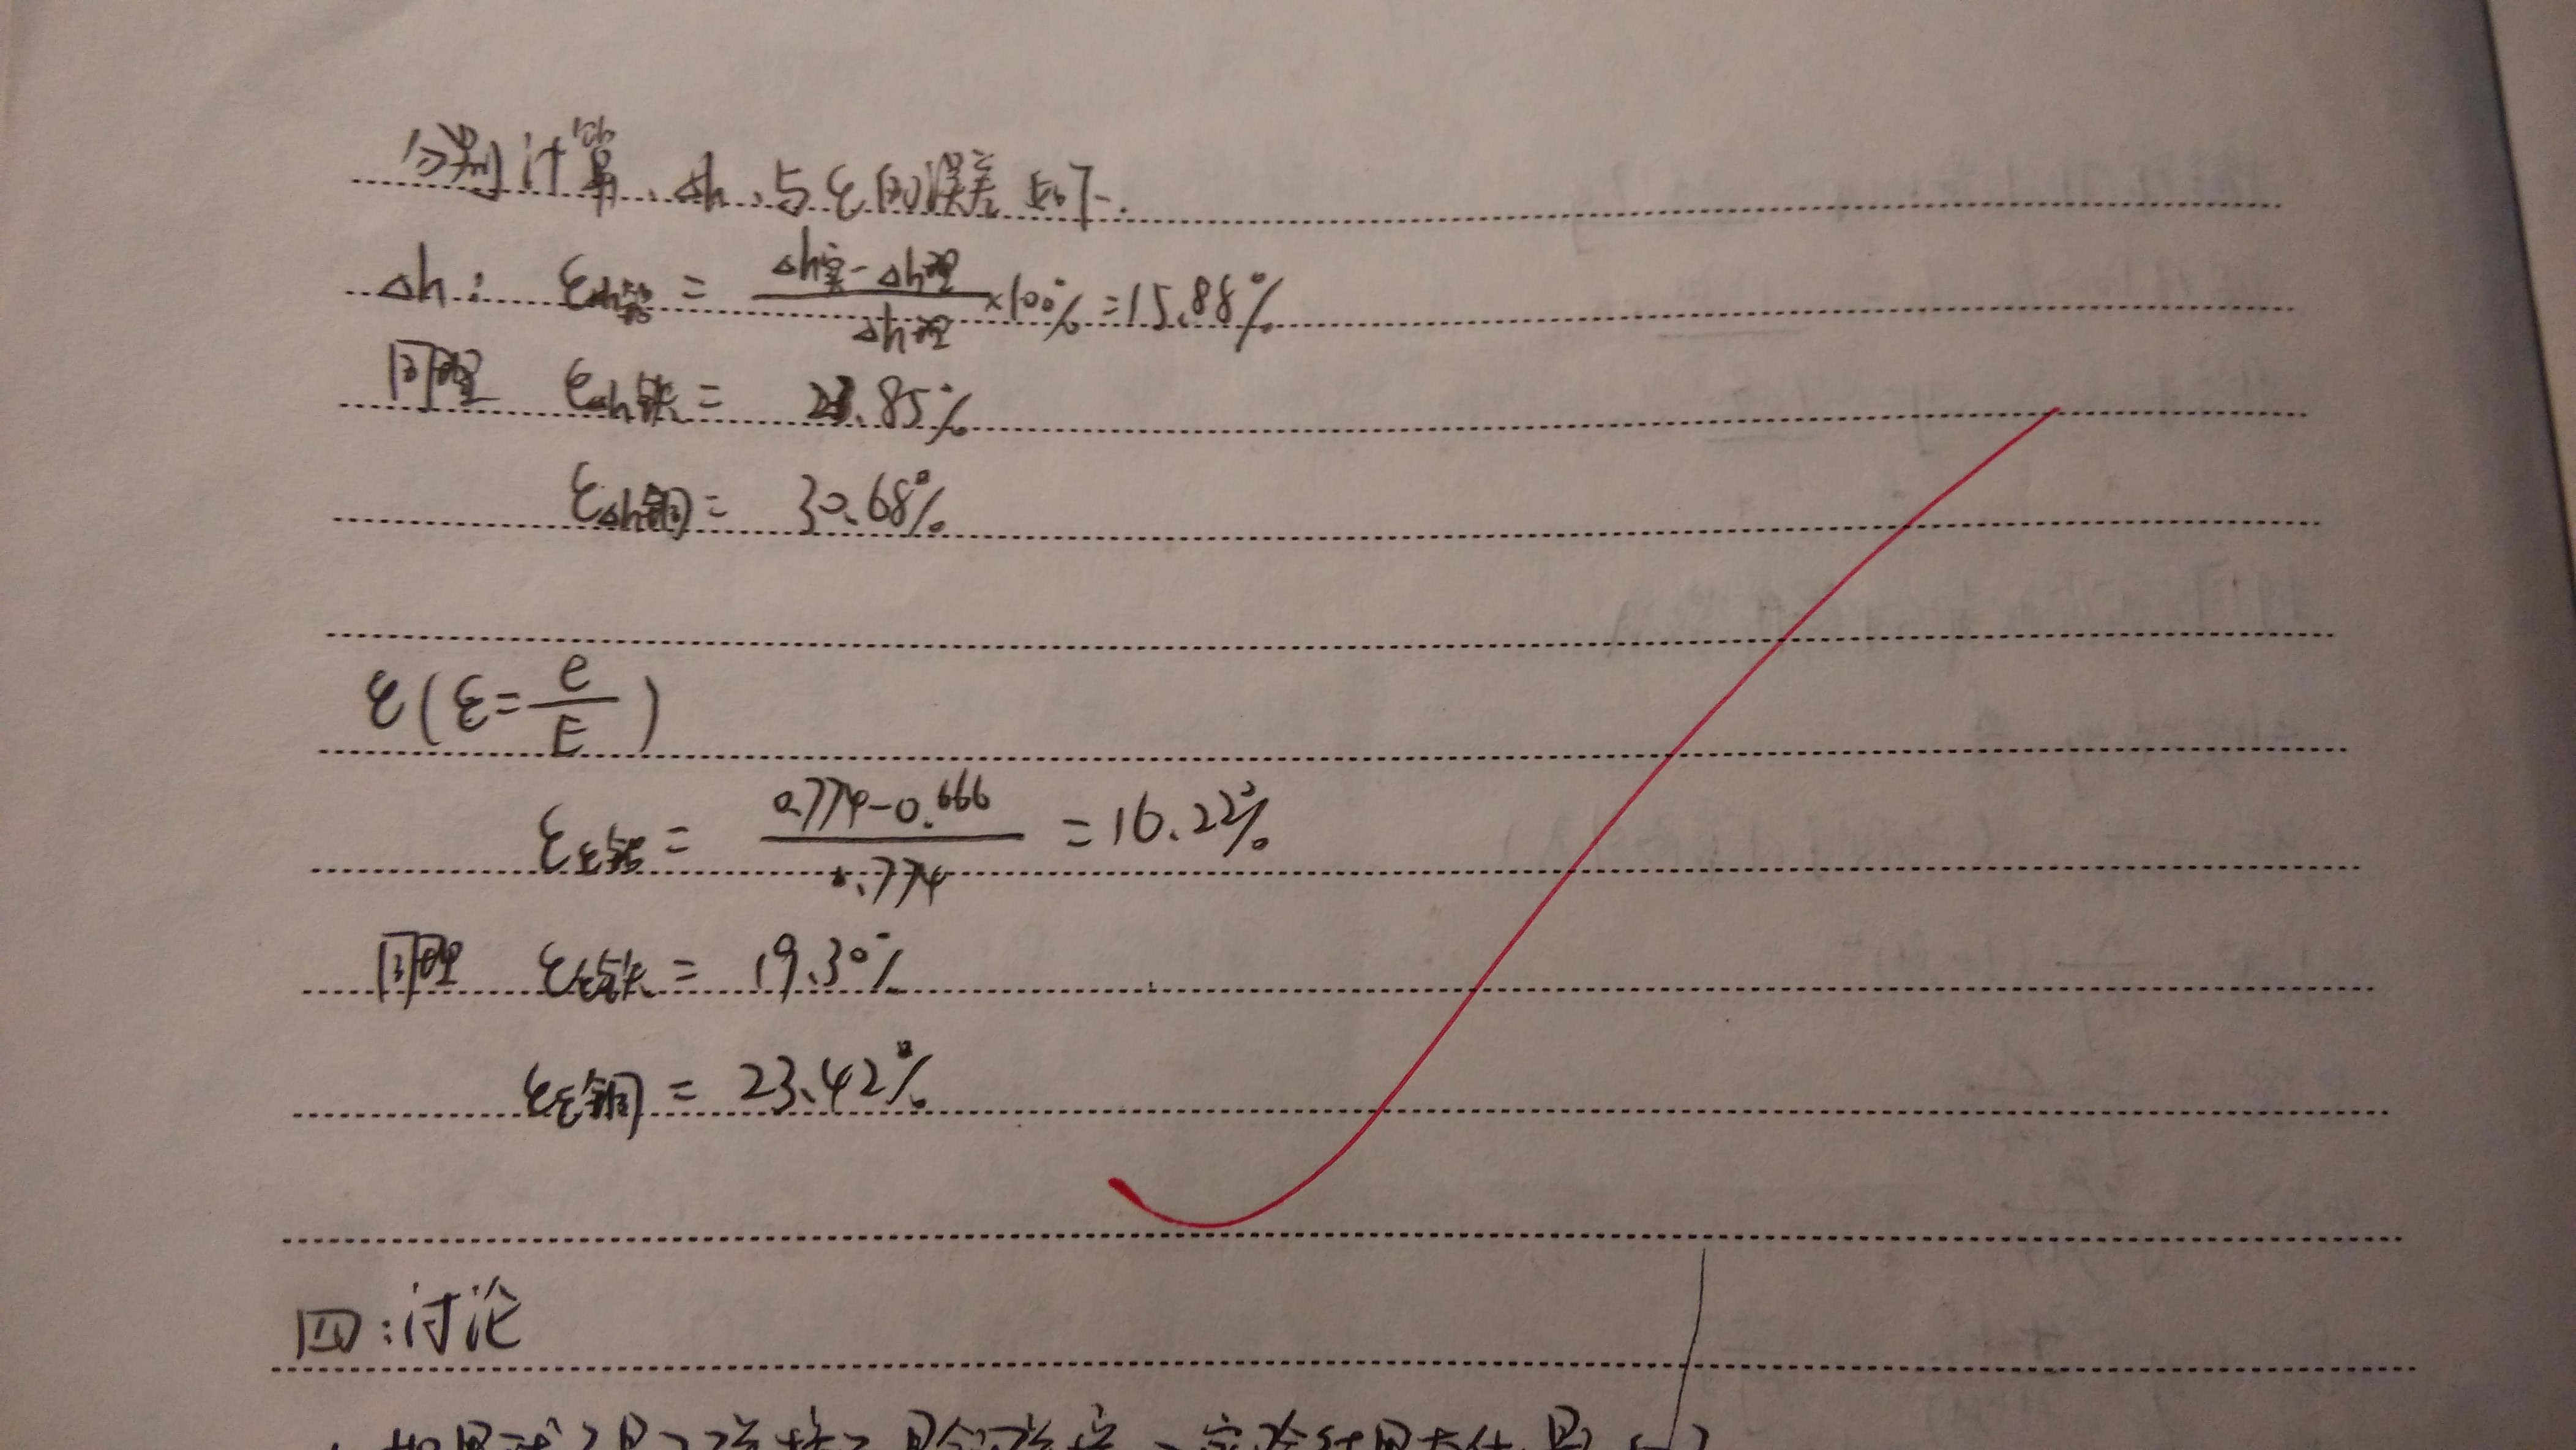 分别计算 Δh 与 ε 的误差如下.
Δh: ε_Δh铝 = (Δh实 - Δh理)/Δh理 ×100% = 15.88%
同理 ε_Δh铁 = 23.85%
ε_Δh铜 = 30.68%
ε (ε = e/E)
ε_ε铝 = (0.774-0.666)/0.774 = 16.22%
同理 ε_ε铁 = 19.30%
ε_ε铜 = 23.42%
四:讨论